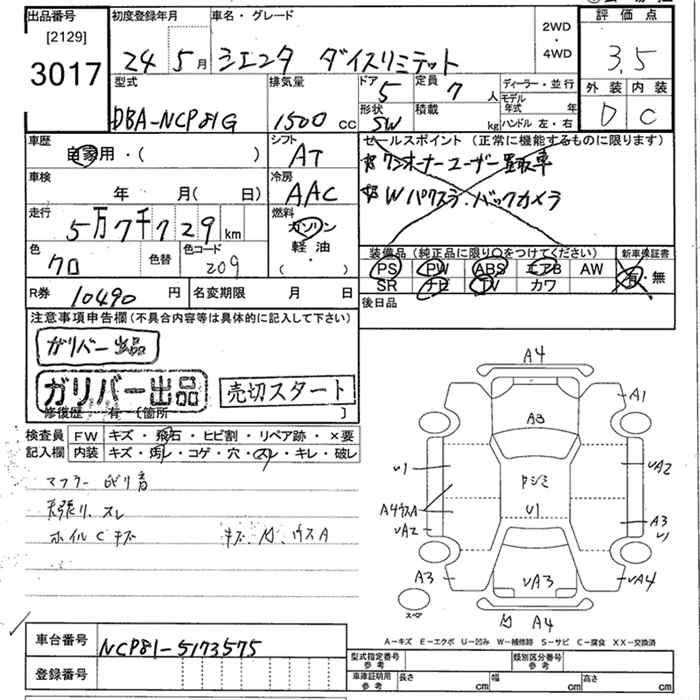 出品番号
[2129]
3017
初度登録年月
24 5月
車名・グレード
シエンタ ダイスリミテット
2WD
・
4WD
評価点
3.5
外装 内装
D C
型式
DBA-NCP81G
排気量
1500 cc
ドア
5
定員
7 人
形状
SW
積載
kg
ディーラー・並行
モデル年式 年
ハンドル 左・右
車歴
自家用・( )
シフト
AT
車検
年 月( 日)
冷房
AAC
走行
5万7千729km
燃料
ガソリン
軽油
・
( )
色
クロ
色替
色コード
209
R券
10490円
名変期限 月 日
セールスポイント(正常に機能するものに限ります)
ワンオーナーユーザー買取車
Wパワスラ・バックカメラ
装備品(純正品に限り○をつけてください)
PS PW ABS エアB AW
SR ナビ TV カワ
新車保証書
有・無
後日品
注意事項申告欄(不具合内容等は具体的に記入して下さい)
ガリバー出品
ガリバー出品
売切スタート
修復歴 有・〔箇所 〕
検査員
記入欄
FW キズ・飛石・ヒビ割・リペア跡・×要
内装 キズ・汚レ・コゲ・穴・スレ・キレ・破レ
マフラー
スレ
ホイルCキズ
キズ、凹、ウスA
A4
A1
A3
U1
UA2
A4ウスA
UA2
U1
A3
U1
A3
UA3
UA4
スペア
凹 A4
A-キズ E-エクボ U-凹み W-補修跡 S-サビ C-腐食 XX-交換済
車台番号
NCP81-5173575
登録番号
型式指定番号
参考
類別区分番号
参考
車庫証明用
参考
長さ cm
幅 cm
高さ cm